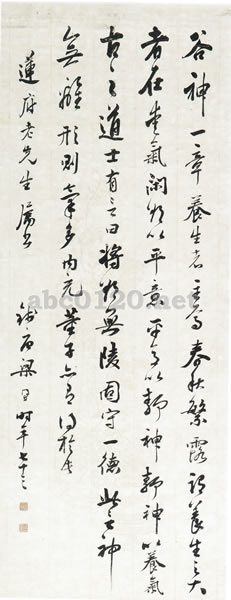 谷神一章養生者焉春秋繁露謂養生之大
者在愛氣閑欲以平意平意以靜神靜神以養氣
古之道士有言曰將欲無陵固守一德此言神
無離形則氣多內充董子亦有得於
蓮府老先生屬書
石梁時年七十三
abc0120.net